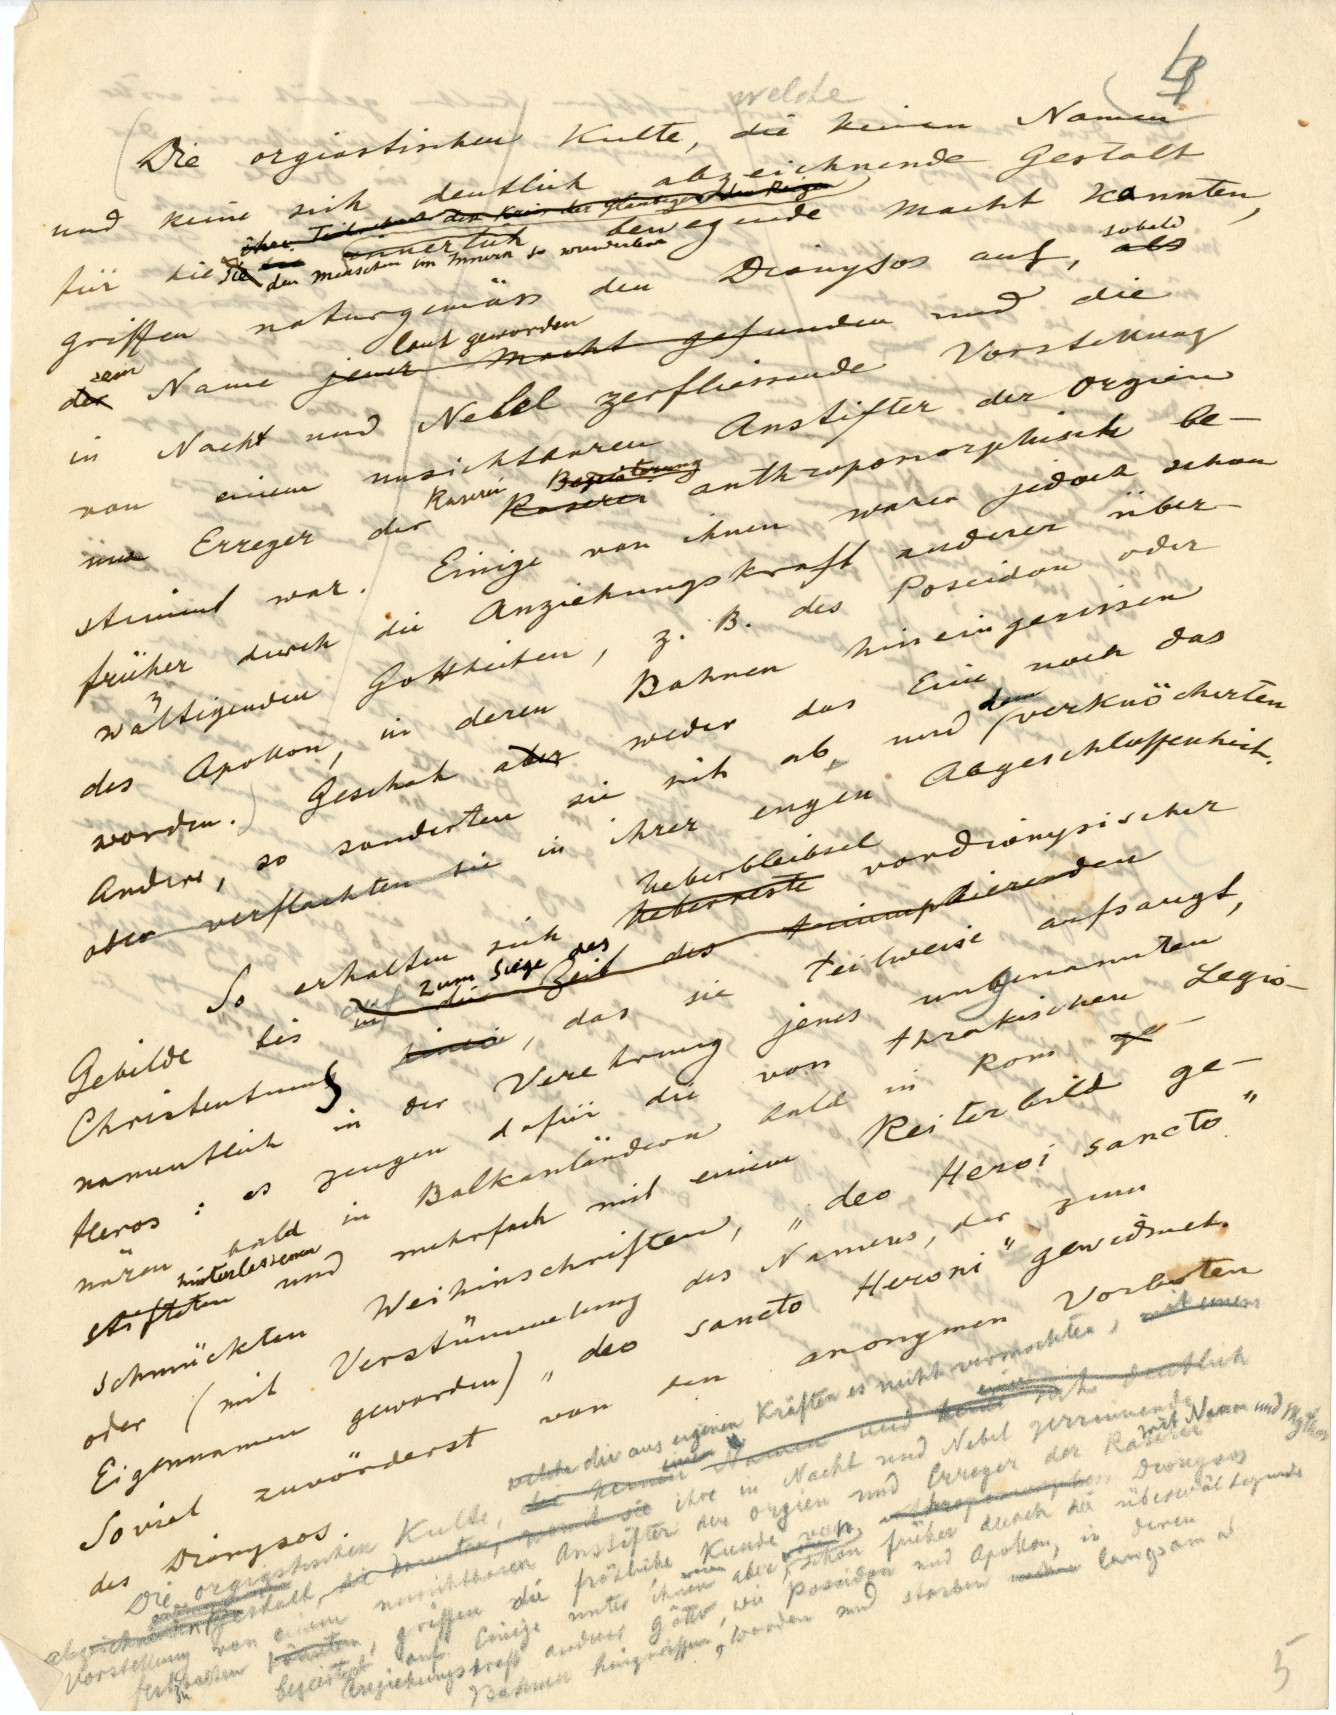 4
welche
(Die orgiastischen Kulte, die keinen Namen
und keine sich deutlich abzeichnende Gestalt
ihre Teilnehmer den Kreis der gläubigen
für die sie innerlich bewegende Macht kannten,
den Menschen im Innern so wunderbar
sobald
griffen naturgemäss den Dionysos auf, als
sein laut geworden
der Name jener Macht gefunden und die
in Nacht und Nebel zerfliessende Vorstellung
von einem unsichtbaren Anstifter der Orgien
Raserei Begeisterung
und Erreger der Raserei anthropomorphisch be-
stimmt war. Einige von ihnen waren jedoch schon
früher durch die Anziehungskraft anderer über-
wältigenden Gottheiten, z. B. des Poseidon oder
des Apollon, in deren Bahnen hineingerissen
worden.) Geschah aber weder das Eine noch das
dann
Andere, so sonderten sie sich ab, und (verknöcherten
oder verflachten sie in ihrer engen Abgeschlossenheit.
Ueberbleibsel
So erhalten sich Ueberreste vordionysischer
auf zum Siege des
Gebilde bis in die Zeit des triumphierenden
Christentums hinein, das sie teilweise aufsaugt,
namentlich in der Verehrung jenes ungenannten
Heros: es zeugen dafür die von thrakischen Legio-
nären bald in Balkanländern bald in Rom ge-
hinterlassenen
stifteten und mehrfach mit einem Reiterbild ge-
schmückten Weihinschriften, „deo Heroi sancto"
oder (mit Verstümmelung des Namens, der zum
Eigennamen geworden) „deo sancto Heroni" gewidmet.
Soviel zuvörderst von den anonymen Vorboten
des Dionysos.
welche die aus eigenen Kräften es nicht vermochten, mit einem
Die orgiastischen Kulte, die keinen Namen und keine sich deutlich
abzeichnende Gestalt, ihre in Nacht und Nebel zerrinnende
mit Namen und Mythos
Vorstellung von einem unsichtbaren Anstifter der Orgien und Erreger der Raserei
griffen die fröhliche Kunde von Dionysos
begeistert auf. Einige unter ihnen aber schon früher durch die überwältigende
Anziehungskraft anderer Götter, wie Poseidon und Apollon, in deren
Bahnen hingerissen worden und starben langsam ab
5